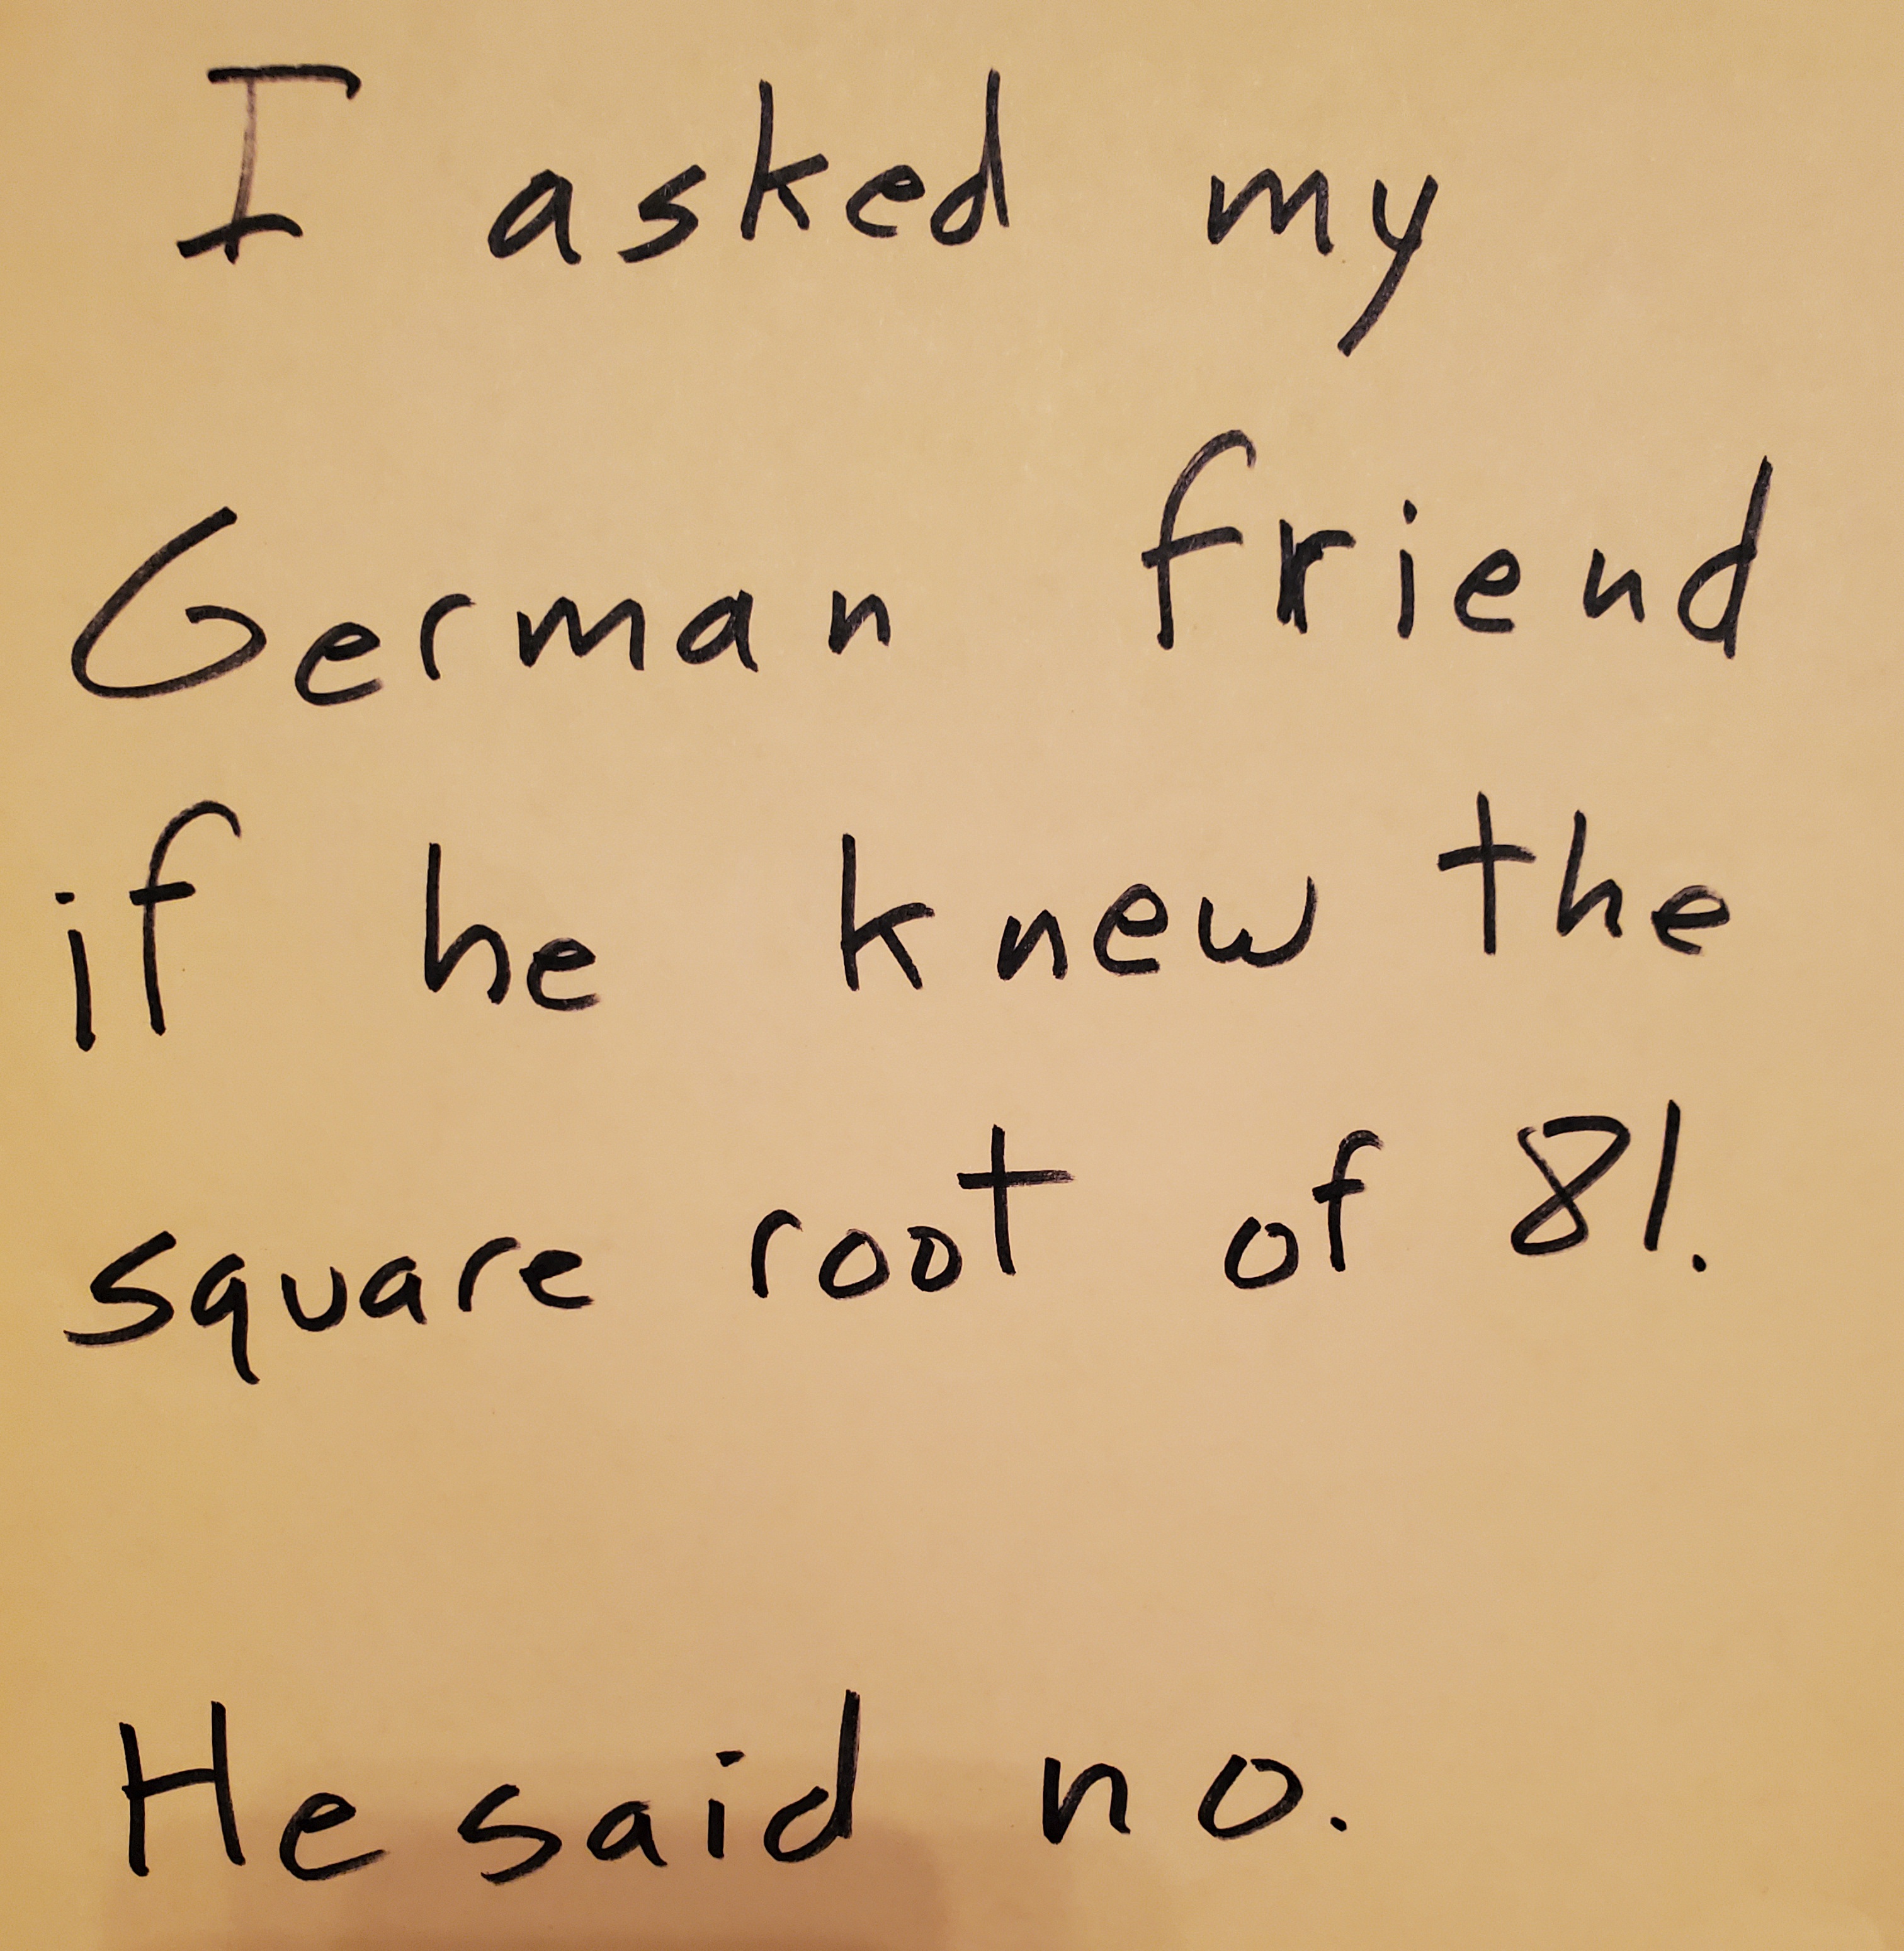 I asked my
German friend
if he knew the
square root of 81.
He said no.